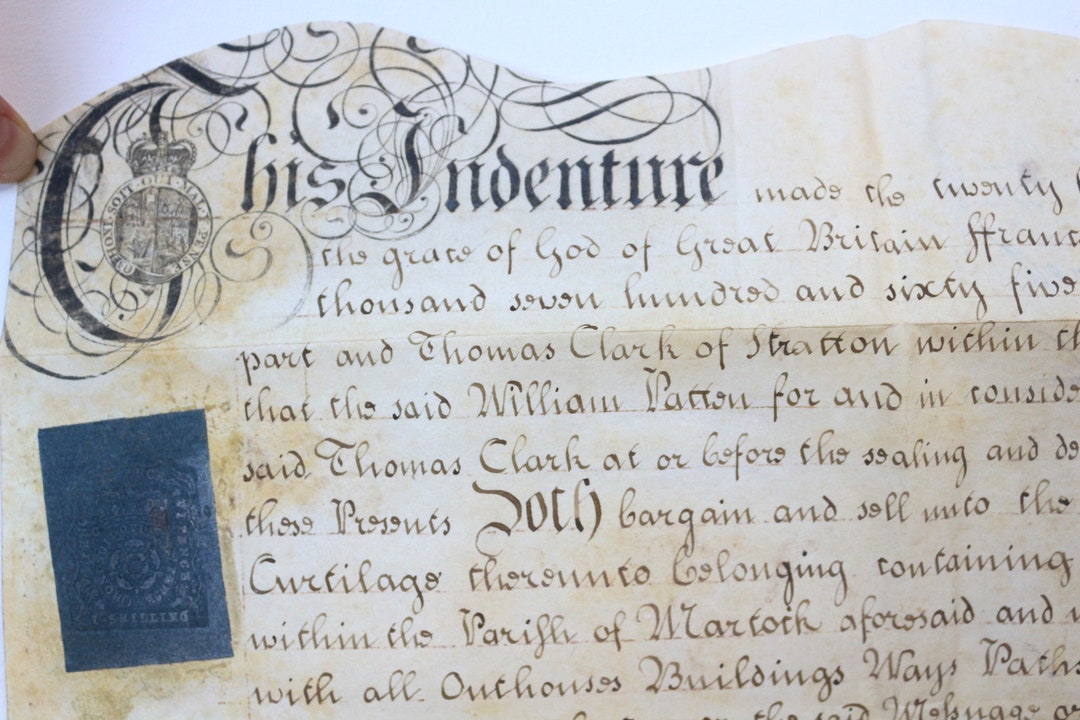 This Indenture made the twenty
the grace of God of Great Britain ffrance
thousand seven hundred and sixty five
part and Thomas Clark of Stratton within th
that the said William Patten for and in conside
said Thomas Clark at or before the sealing and de
these Presents Doth bargain and sell unto the
Curtilage thereunto belonging containing
within the Parish of Martock aforesaid and
with all Outhouses Buildings Ways Paths
the said Messuage or
HONI·SOIT·QUI·MAL·Y·PENSE
SHILLING